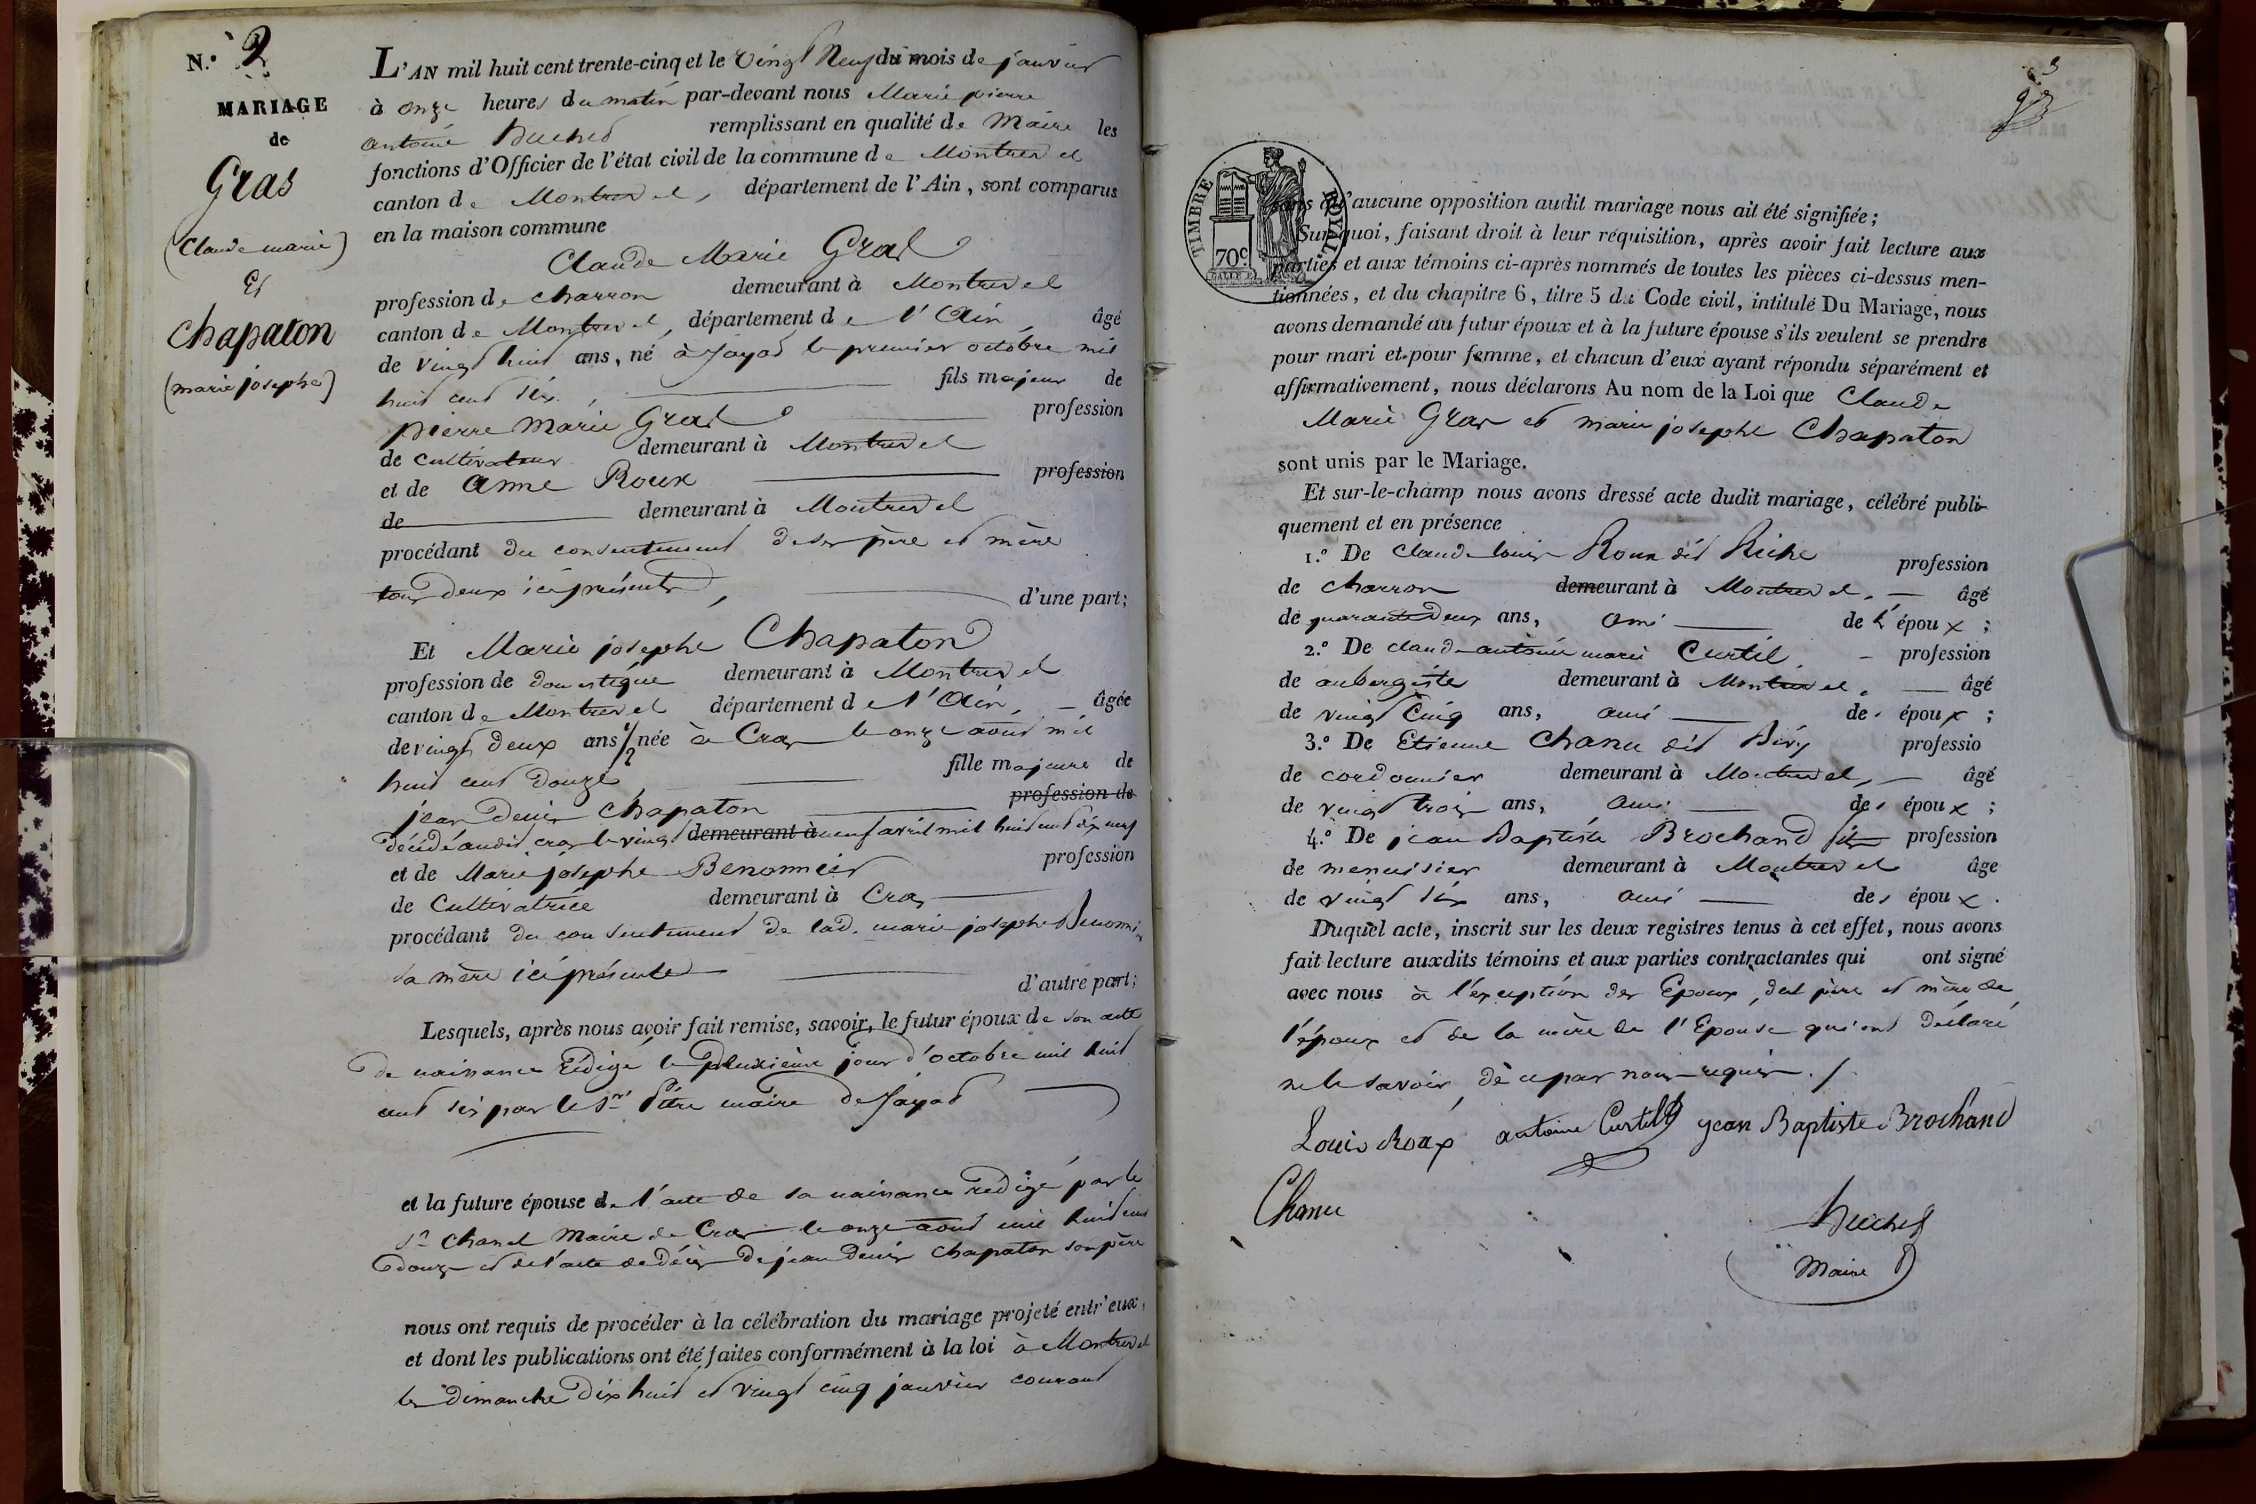 N.° 2
MARIAGE
de
Gras
(Claude marie)
Et
Chapaton
(marie josephe)
L'AN mil huit cent trente-cinq et le vingt Neuf du mois de janvier
à onze heures du matin par-devant nous Marie pierre
antoine remplissant en qualité de Maire les
fonctions d'Officier de l'état civil de la commune de Montrevel
canton de Montrevel, département de l'Ain, sont comparus
en la maison commune
Claude Marie Gras
profession de charron demeurant à Montrevel
canton de Montrevel, département de l'Ain, âgé
de vingt huit ans, né à Jayat le premier octobre mil
huit cent six, fils majeur de
pierre Marie Gras profession
de cultivateur demeurant à Montrevel
et de anne Roux profession
de demeurant à Montrevel
procédant du consentement de ses père et mère
tous deux ici présents, d'une part;
Et Marie josephe Chapaton
profession de domestique demeurant à Montrevel
canton de Montrevel département de l'Ain, âgée
de vingt deux ans 1/2 née à Cras le onze aout mil
huit cent douze fille majeure de
jean Denis Chapaton profession de
décédé audit cras le vingt demeurant à neuf avril mil huit cent dix neuf
et de Marie josephe Benonnier profession
de Cultivatrice demeurant à Cras
procédant du consentement de lad. marie josephe
sa mère ici présente d'autre part;
Lesquels, après nous avoir fait remise, savoir, le futur époux de son acte
de naissance rédigé le deuxième jour d'octobre mil huit
cent six par le Sr. Pitre maire de Jayat
et la future épouse de l'acte de sa naissance redigé par le
Sr. Chanel Maire de Cras le onze aout mil huit cent
douze et de l'acte de décès de jean denis Chapaton son père
nous ont requis de procéder à la célébration du mariage projeté entr'eux,
et dont les publications ont été faites conformément à la loi à Montrevel
les dimanche dix huit et vingt cinq janvier courant
3
TIMBRE ROYAL
70c
sans qu'aucune opposition audit mariage nous ait été signifiée;
Sur quoi, faisant droit à leur réquisition, après avoir fait lecture aux
parties et aux témoins ci-après nommés de toutes les pièces ci-dessus men-
tionnées, et du chapitre 6, titre 5 du Code civil, intitulé Du Mariage, nous
avons demandé au futur époux et à la future épouse s'ils veulent se prendre
pour mari et pour femme, et chacun d'eux ayant répondu séparément et
affirmativement, nous déclarons Au nom de la Loi que Claude
Marie Gras et marie josephe Chapaton
sont unis par le Mariage.
Et sur-le-champ nous avons dressé acte dudit mariage, célébré publi-
quement et en présence
1.° De Claude louis Roux dit Riche profession
de charron demeurant à Montrevel, âgé
de quarante deux ans, ami de l'époux;
2.° De claude antoine marie Curtil, profession
de aubergiste demeurant à Montrevel, âgé
de vingt Cinq ans, ami des époux;
3.° De Etienne Chanu dit profession
de cordonnier demeurant à Montrevel, âgé
de vingt trois ans, ami des époux;
4.° De jean Baptiste Brochand profession
de menuisier demeurant à Montrevel âgé
de vingt six ans, ami des époux.
Duquel acte, inscrit sur les deux registres tenus à cet effet, nous avons
fait lecture auxdits témoins et aux parties contractantes qui ont signé
avec nous à l'exception des Epoux, des père et mère de
l'époux et de la mère de l'Epouse qui ont déclaré
ne le savoir, de ce par nous requis.
Louis Roux antoine Curtil jean Baptiste Brochand
Chanu
Maire